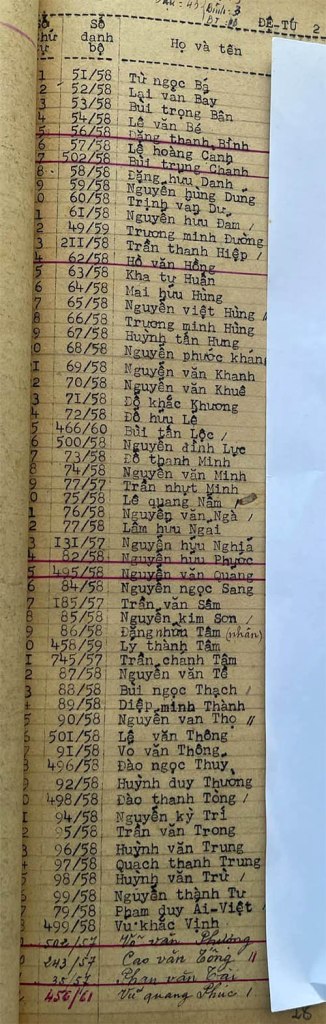 ĐỆ-TỨ 2
Số thứ tự Số danh bộ Họ và tên
1 51/58 Từ ngọc Bá
2 52/58 Lại văn Bay
3 53/58 Bùi trọng Bân
4 54/58 Lê văn Bé
5 56/58 Đặng thanh Bình
6 57/58 Lê hoàng Canh
7 502/58 Bùi trung Chanh
8 58/58 Đặng hữu Danh
9 59/58 Nguyễn hùng Dũng
0 60/58 Trịnh văn Dư
1 61/58 Nguyễn hữu Đam /
2 49/59 Trương minh Đường
3 211/58 Trần thanh Hiệp /
4 62/58 Hồ văn Hồng
5 63/58 Kha tư Huấn
6 64/58 Mai hữu Hùng
7 65/58 Nguyễn việt Hùng //
8 66/58 Trương minh Hùng
9 67/58 Huỳnh tấn Hưng
0 68/58 Nguyễn phước khang
I 69/58 Nguyễn văn Khanh
2 70/58 Nguyễn văn Khuê
3 71/58 Đỗ khắc Khương
4 72/58 Đỗ hữu Lê
5 466/60 Bùi tấn Lộc /
6 500/58 Nguyễn đình Lực
7 73/58 Đỗ thanh Minh
8 74/58 Nguyễn văn Minh
9 77/57 Trần nhựt Minh
0 75/58 Lê quang Năm /
1 76/58 Nguyễn văn Ngà /
2 77/58 Lâm hữu Ngai
3 131/57 Nguyễn hữu Nghiã
4 82/58 Nguyễn hữu Phước
5 495/58 Nguyễn văn Quảng
6 84/58 Nguyễn ngọc Sang
7 185/57 Trần văn Sâm
8 85/58 Nguyễn kim Sơn /
9 86/58 Đặng hữu Tâm (nhẩn)
0 458/59 Ly thành Tâm
I 745/57 Trần chanh Tâm
2 87/58 Nguyễn văn Tê
3 88/58 Bùi ngọc Thạch /
4 89/58 Diệp minh Thành
5 90/58 Nguyễn văn Thọ //
6 501/58 Lê văn Thông
7 91/58 Võ văn Thông
8 496/58 Đào ngọc Thuy
9 92/58 Huỳnh duy Thường
0 498/58 Đào thanh Tòng /
I 94/58 Nguyễn kỳ Trí
2 95/58 Trần văn Trong
3 96/58 Huỳnh văn Trung
4 97/58 Quach thanh Trung
5 98/58 Huỳnh văn Trừ /
6 99/58 Nguyễn thành Tư
7 79/58 Phạm duy Ái-Việt /
8 499/58 Vũ khắc Vinh
502/57 Võ văn Phương
243/57 Cao văn Tông //
35/57 Phan văn Tài
456/61 Vũ quang Phúc /